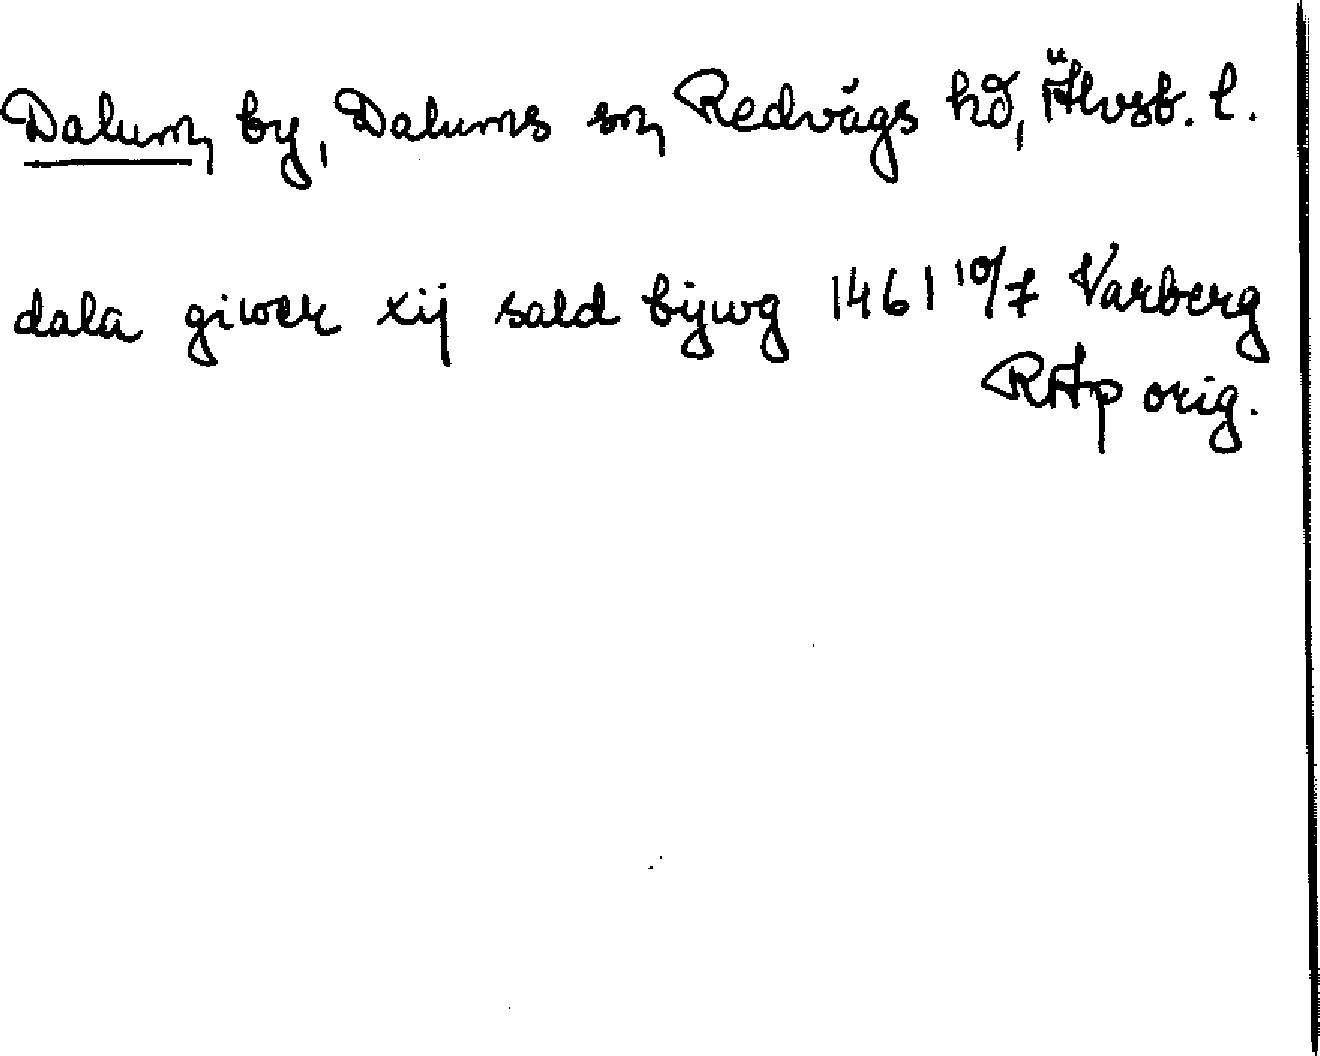 Dalum, by, Dalums sn, Redvägs hd, Älvsb. l.
dala giwer xij sald bijwg 1461 10/7 Varberg
RAp orig.